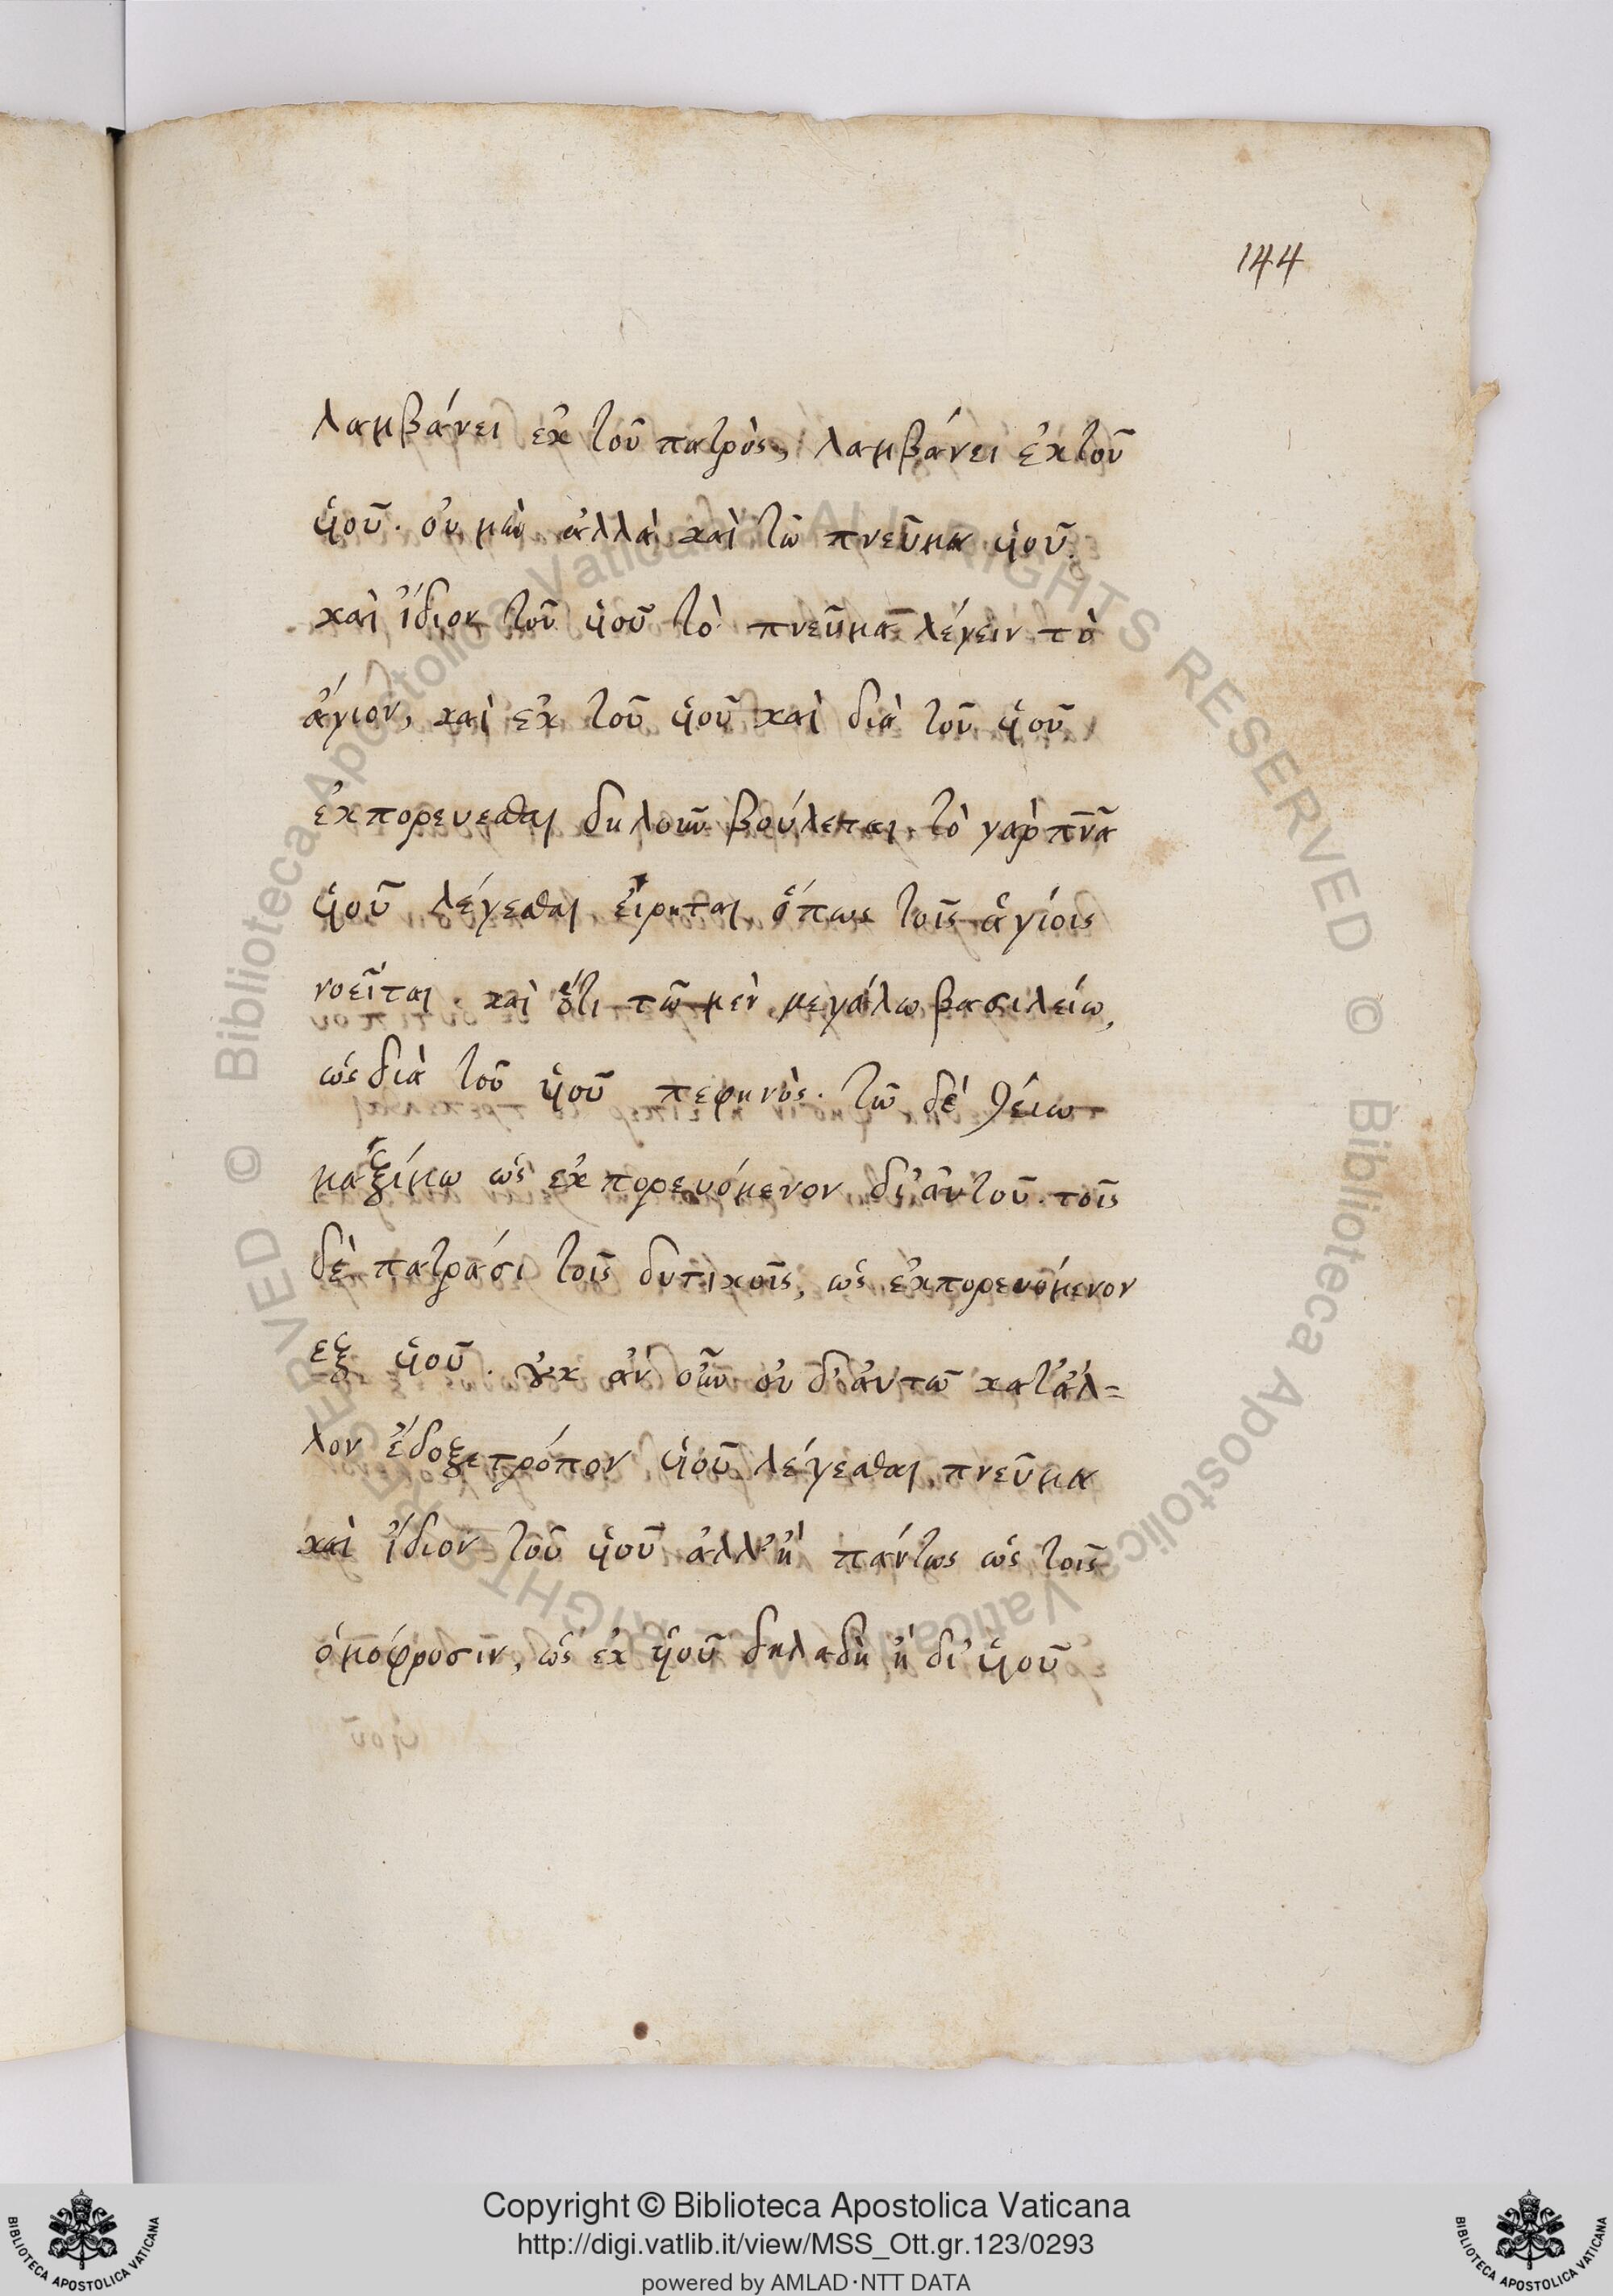 144
λαμβάνει ἐκ τοῦ πατρὸς, λαμβάνει ἐκ τοῦ
ὑιοῦ. οὐ μὴν ἀλλὰ καὶ τῶ πνεῦμα ὑιοῦ.
καὶ ἴδιον τοῦ ὑιοῦ τὸ πνεῦμα λέγειν τὸ
ἅγιον, καὶ ἐκ τοῦ ὑιοῦ καὶ διὰ τοῦ ὑιοῦ
ἐκπορευεσθαι δηλοῦν βούλεται. τὸ γαρ πν̅α̅
ὑιοῦ λέγεσθαι εἴρηται ὅπως τοῖς ἁγίοις
νοεῖται. καὶ ὅτι τῶ μὲν μεγάλω βασιλείω,
ὡς διὰ τοῦ ὑιοῦ πεφηνὸς. τῶ δὲ θείω
μαξίμω ὡς ἐκπορευόμενον δι' ἀυτοῦ. τοῖς
δὲ πατράσι τοῖς δυτικοῖς, ὡς ἐκπορευόμενον
εξ ὑιοῦ. οὐκ ἀν οὖν οὐδ' ἀυτῶ κατ' ἀλ=
λον ἔδοξε τρόπον ὑιοῦ λέγεσθαι πνεῦμα
καὶ ἴδιον τοῦ ὑιοῦ ἀλλ' ἢ πάντως ὡς τοῖς
ὁμόφροσιν, ὡς ἐκ ὑιοῦ δηλαδὴ ἢ δι' ὑιοῦ
© Biblioteca Apostolica Vaticana ALL RIGHTS RESERVED © Biblioteca Apostolica Vaticana ALL RIGHTS RESERVED
Copyright © Biblioteca Apostolica Vaticana
http://digi.vatlib.it/view/MSS_Ott.gr.123/0293
powered by AMLAD·NTT DATA
BIBLIOTECA APOSTOLICA VATICANA
BIBLIOTECA APOSTOLICA VATICANA